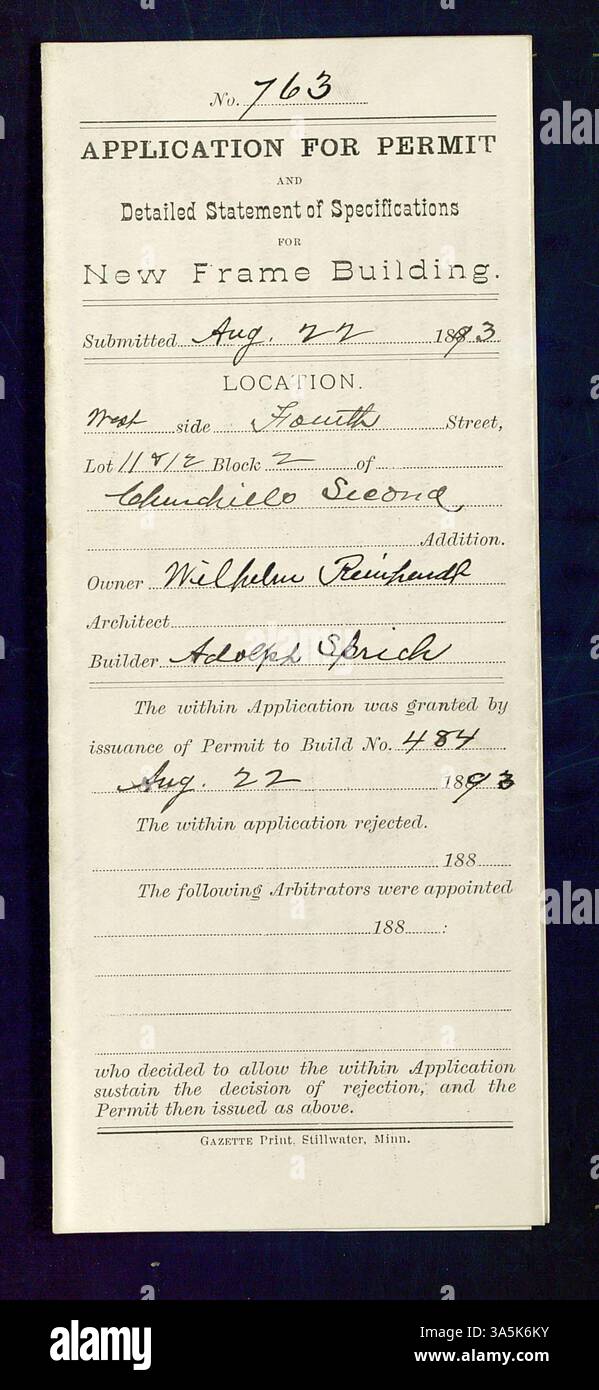 No. 763
APPLICATION FOR PERMIT
AND
Detailed Statement of Specifications
FOR
New Frame Building.
Submitted Aug. 22 1893
LOCATION.
West side Fourth Street,
Lot 11 & 12 Block 2 of
Churchills Second
Addition.
Owner Wilhelm Reinhardt
Architect
Builder Adolph Sprich
The within Application was granted by
issuance of Permit to Build No. 484
Aug. 22 1893
The within application rejected.
188
The following Arbitrators were appointed
188 :
who decided to allow the within Application
sustain the decision of rejection, and the
Permit then issued as above.
GAZETTE Print, Stillwater, Minn.
alamy
Image ID: 3A5K6KY
www.alamy.com